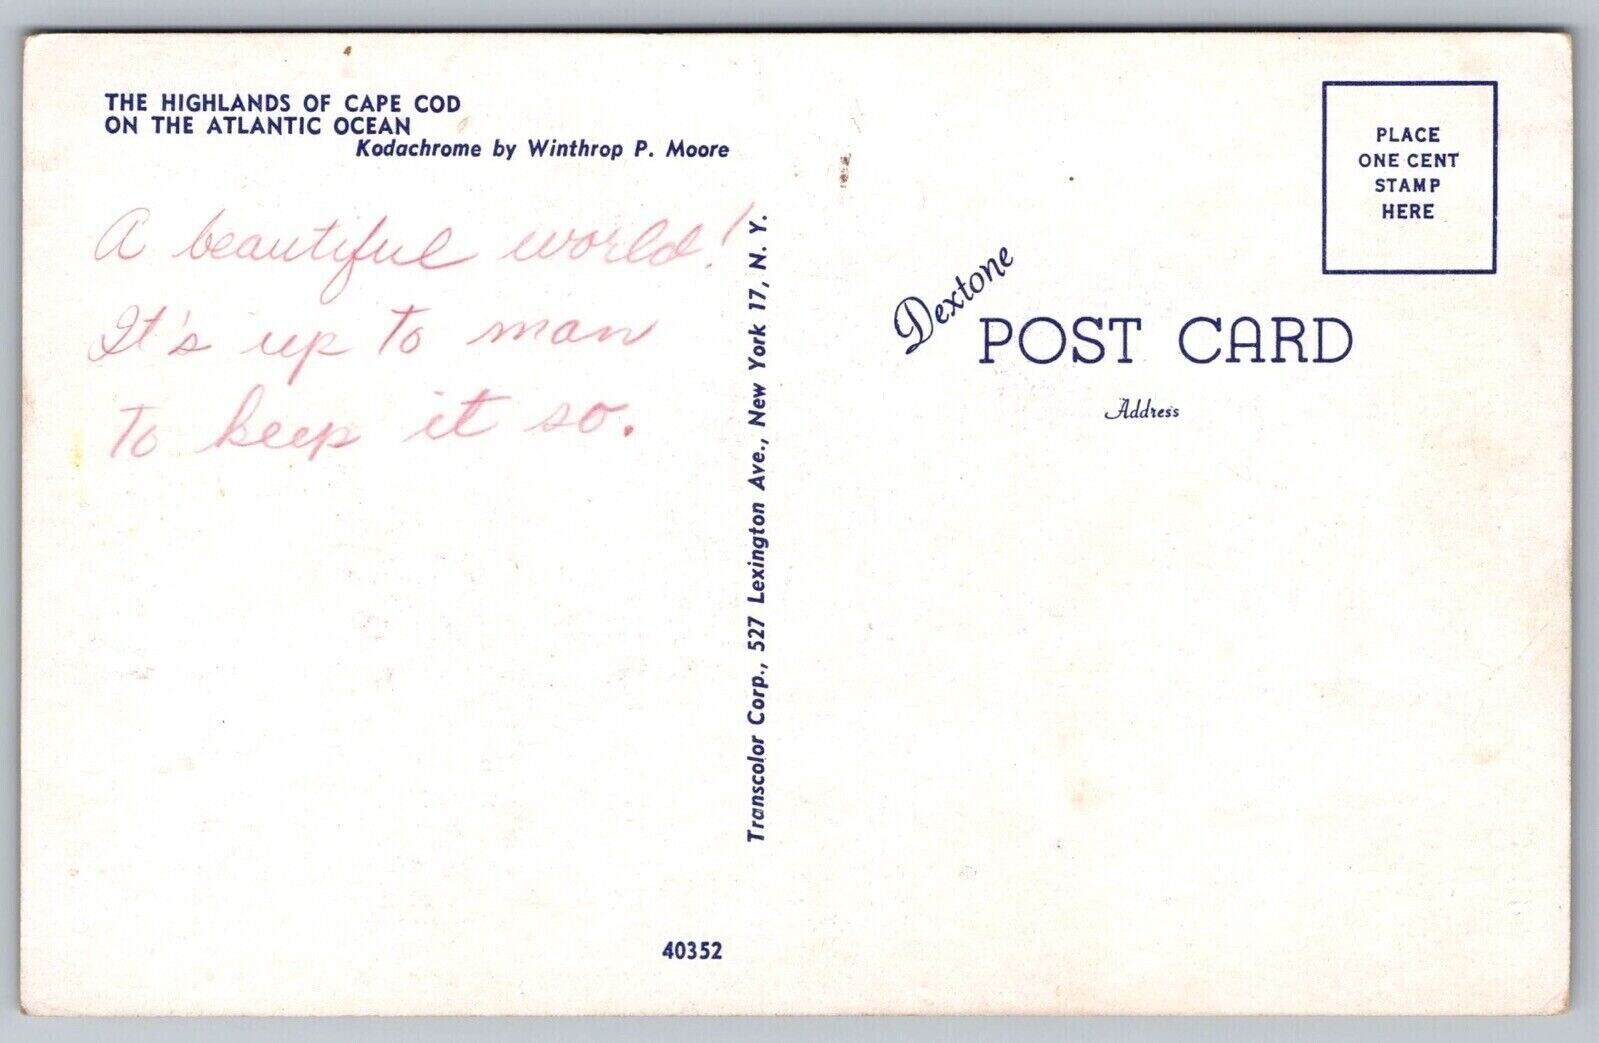 THE HIGHLANDS OF CAPE COD
ON THE ATLANTIC OCEAN
Kodachrome by Winthrop P. Moore
A beautiful world!
It's up to man
to keep it so.
40352
Transcolor Corp., 527 Lexington Ave., New York 17, N. Y.
PLACE
ONE CENT
STAMP
HERE
Dextone
POST CARD
Address